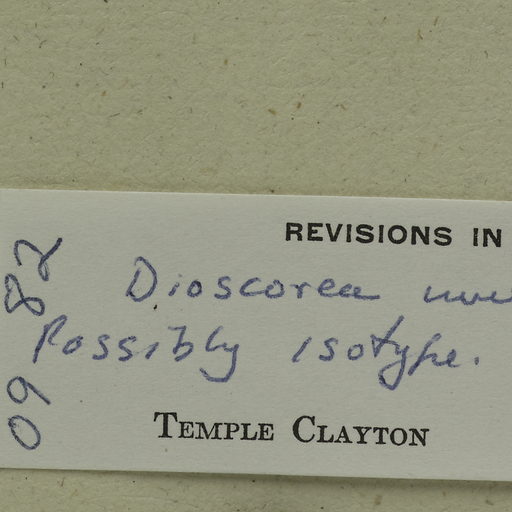 REVISIONS IN
Dioscorea
Possibly isotype.
TEMPLE CLAYTON
09 82